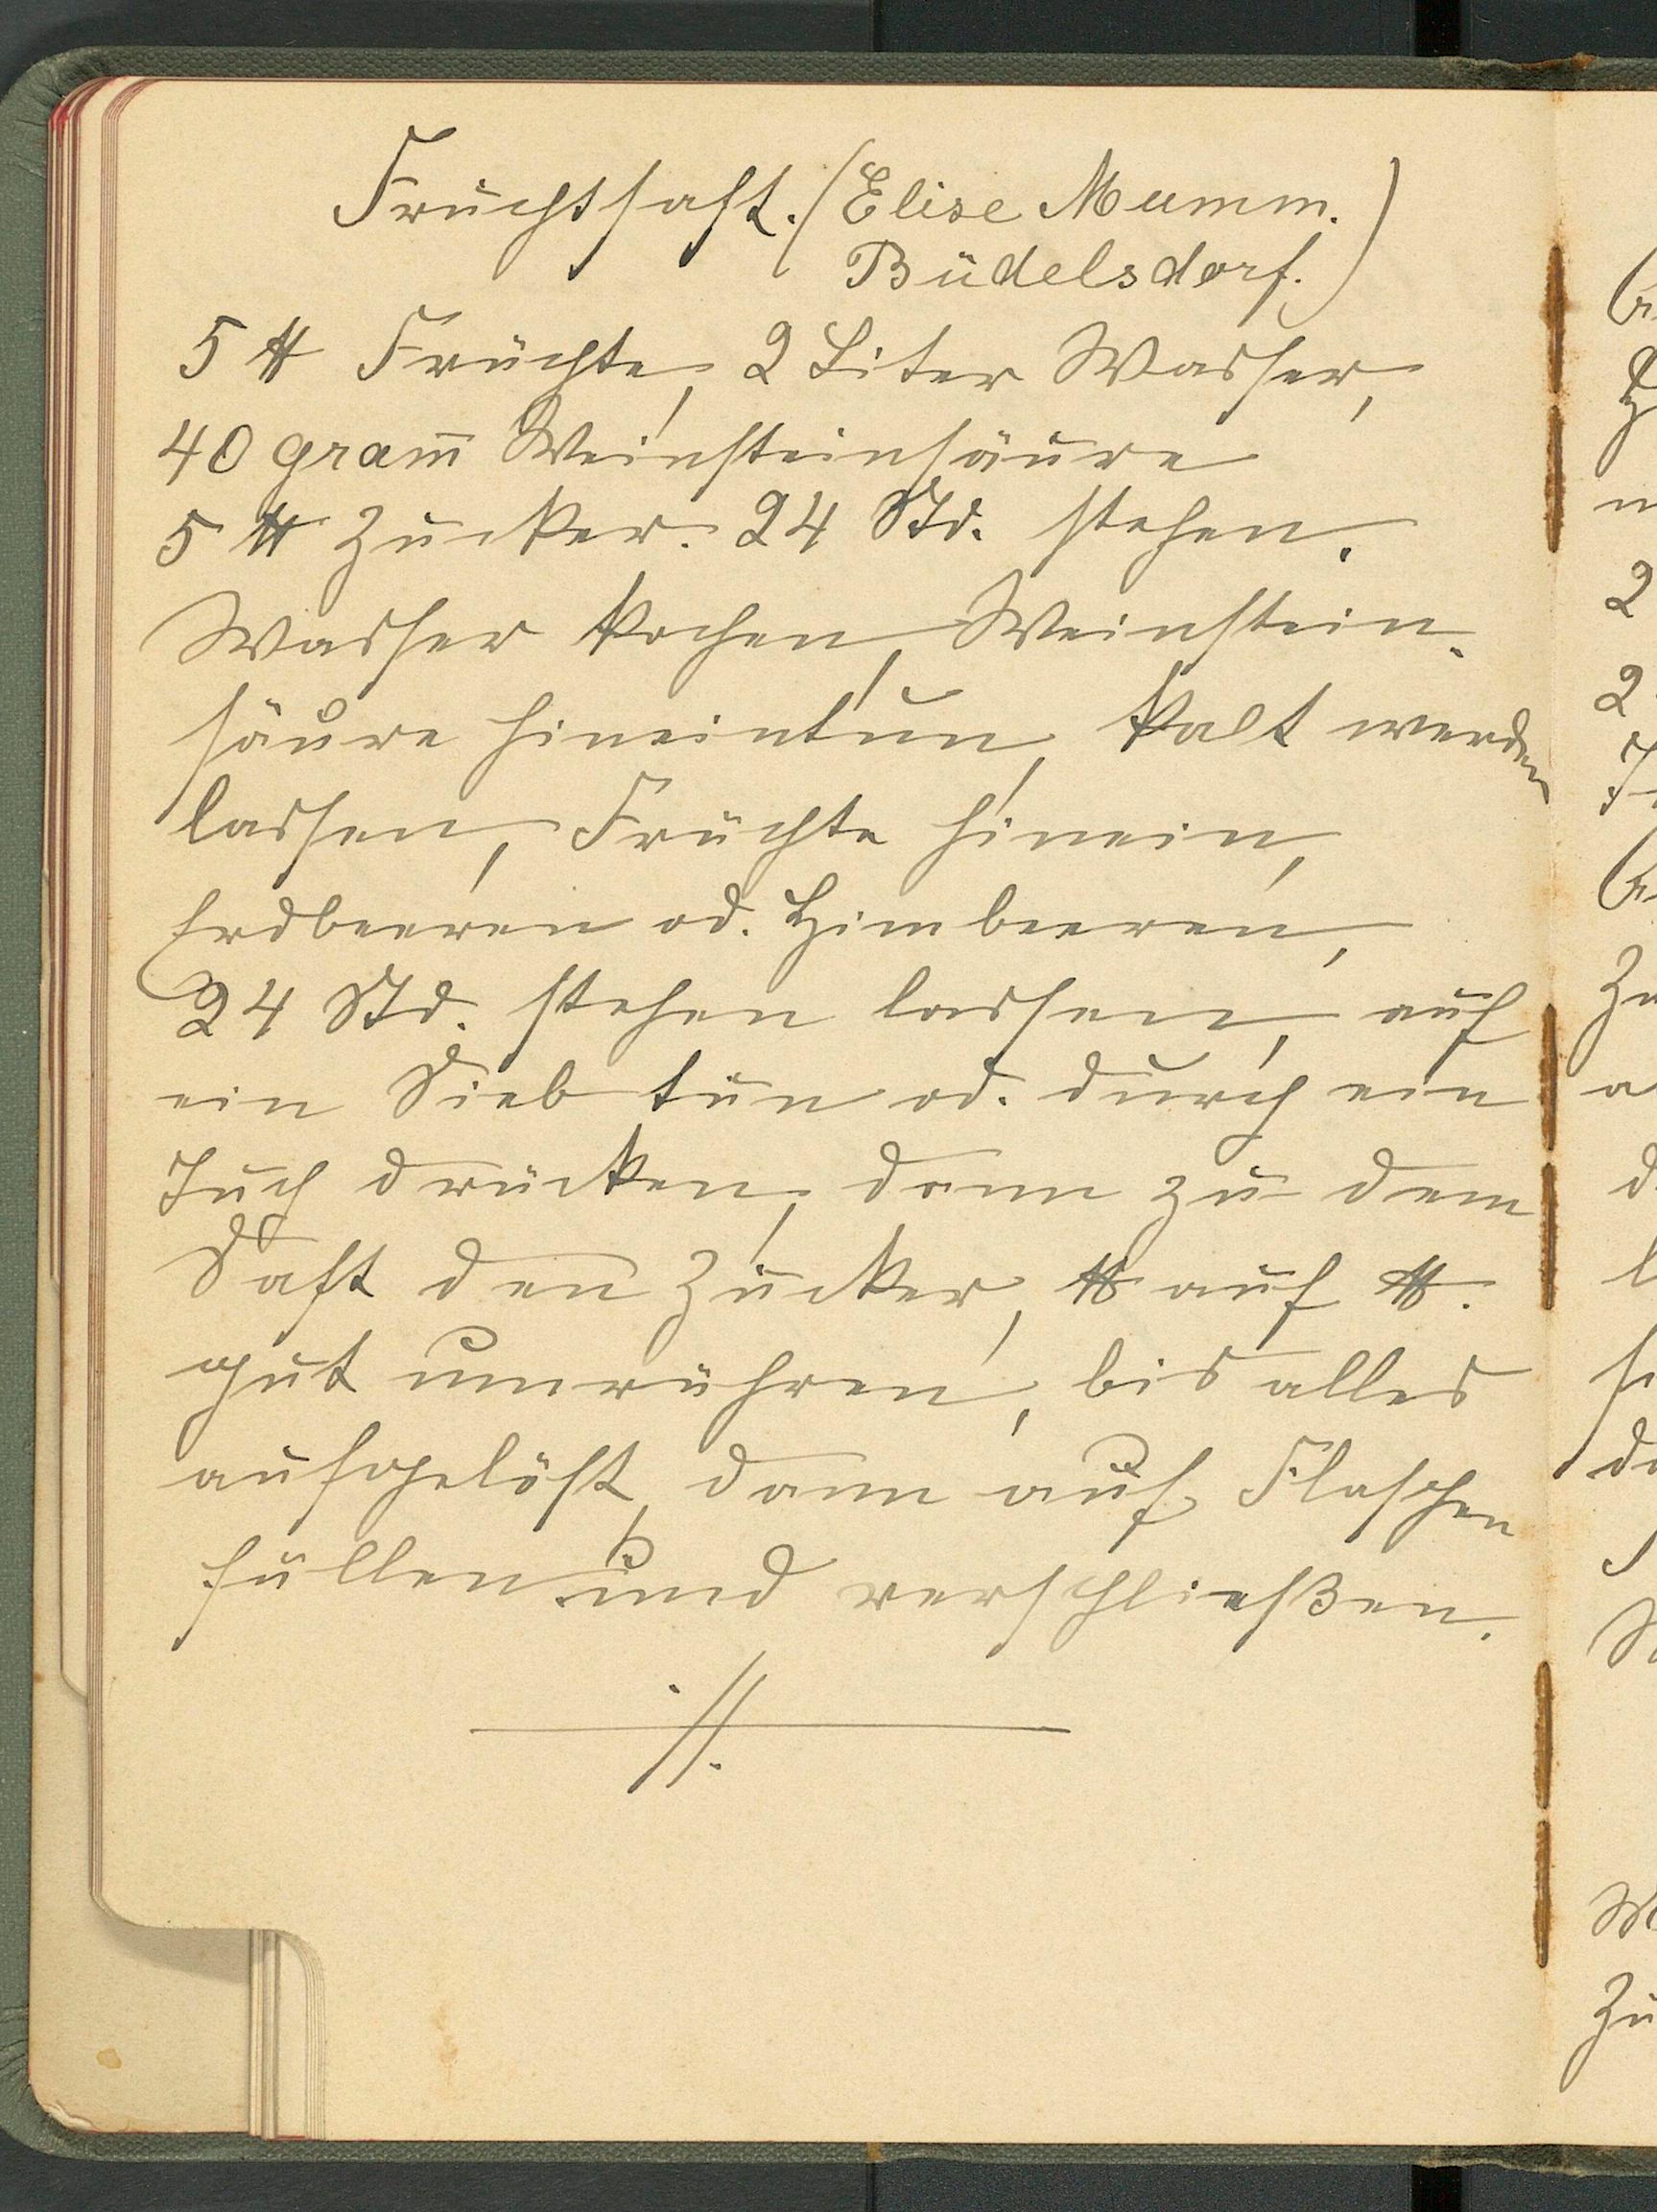 Fruchtsaft. (Elise Mumm.
Büdelsdorf.)
5 ℔ Früchte, 2 Liter Wasser,
40 gram̅ Weinsteinsäure
5 ℔ Zucker. 24 Std. stehen.
Wasser kochen, Weinstein-
säure hineintun, kalt werden
lassen, Früchte hinein,
Erdbeeren od. Himbeeren,
24 Std. stehen lassen, auf
ein Sieb tun od. durch ein
Tuch drücken, dann zu dem
Saft den Zucker, ℔ auf ℔.
gut umrühren, bis alles
aufgelöst, dann auf Flaschen
füllen und verschließen.